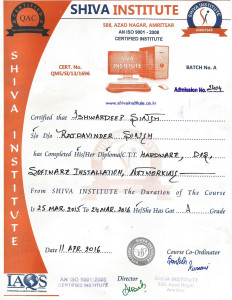 SHIVA INSTITUTE
QAC
58B, AZAD NAGAR, AMRITSAR
AN ISO 9001 : 2008
CERTIFIED INSTITUTE
CERT. No.
QMS/SI/13/1696
BATCH No. A
Admission No.
www.shivainstitute.co.in
SHIVA INSTITUTE
Certified that ISHWARDEEP SINGH
S/o D/o RAJDAVINDER SINGH
has Completed His/Her Diploma(C.T.T. HARDWARE, DOS,
SOFTWARE INSTALLATION, NETWORKING)
From SHIVA INSTITUTE The Duration of the Course
is 25 MAR 2015 To 24 MAR 2016 He/She Has Got A Grade
Date 11 APR. 2016
Course Co-ordinator
IAQS
AN ISO 9001:2008
CERTIFIED INSTITUTE
Director
SHIVA INSTITUTE
58B, Azad Nagar
Amritsar